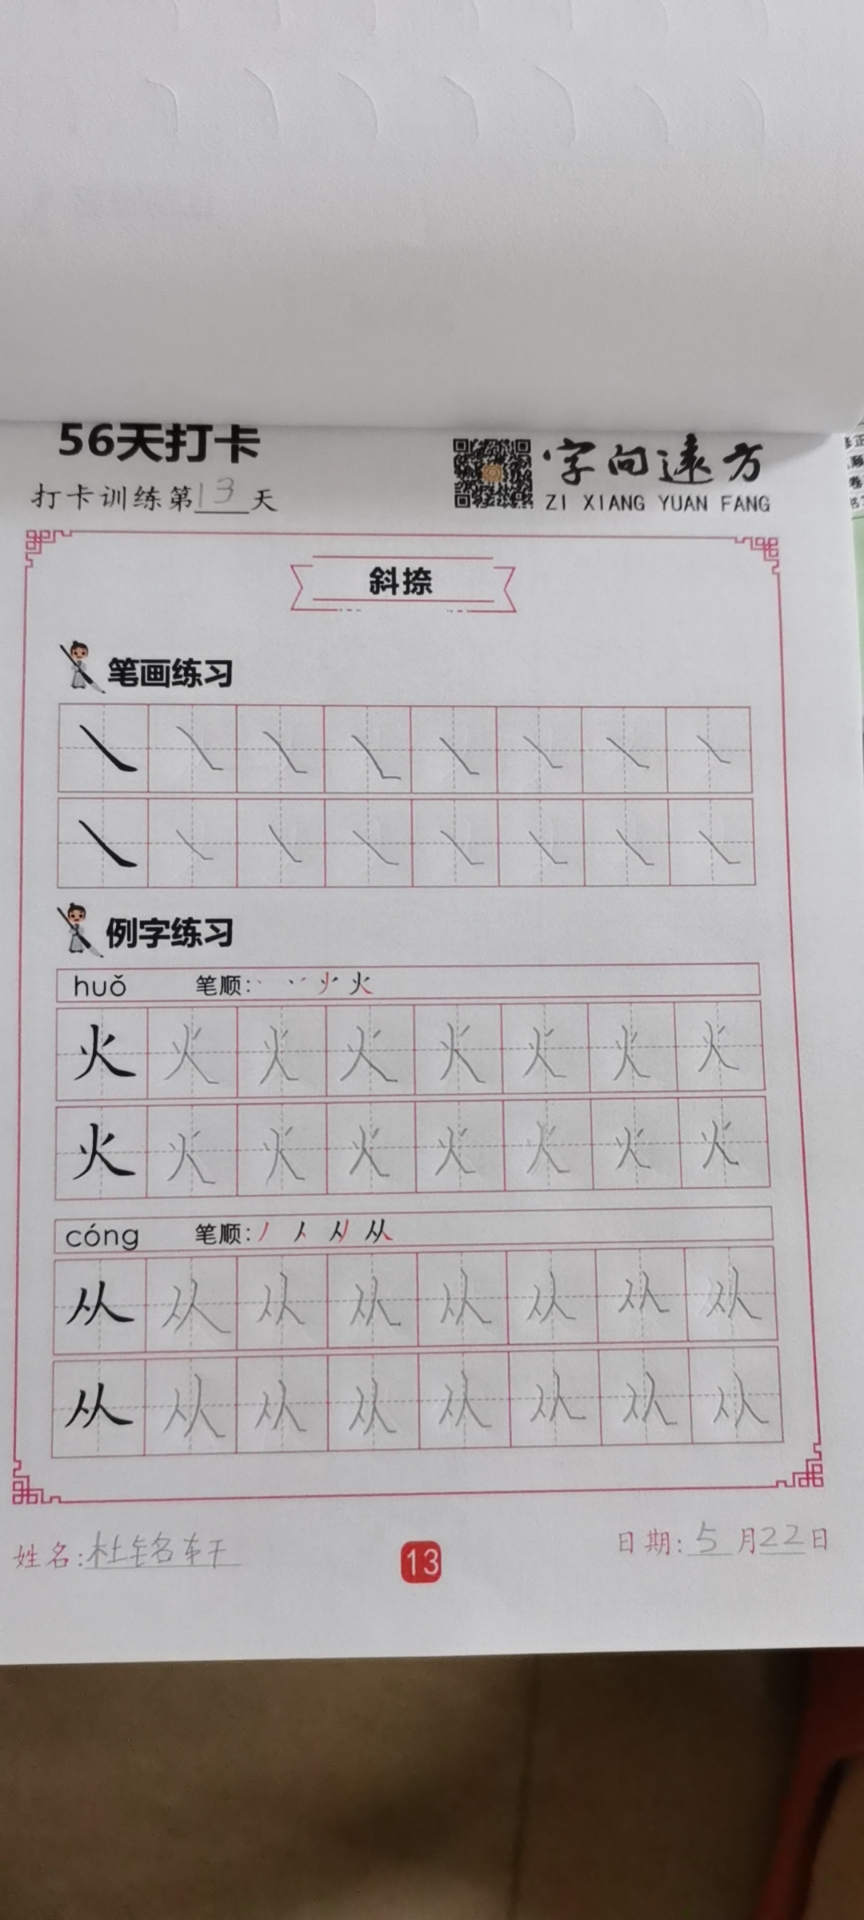 56天打卡
字向遠方
打卡训练第13天
ZI XIANG YUAN FANG
斜捺
笔画练习
㇏ ㇏ ㇏ ㇏ ㇏ ㇏ ㇏ ㇏
㇏ ㇏ ㇏ ㇏ ㇏ ㇏ ㇏ ㇏
例字练习
huǒ 笔顺: 火
火 火 火 火 火 火 火 火
火 火 火 火 火 火 火 火
cóng 笔顺: 从
从 从 从 从 从 从 从 从
从 从 从 从 从 从 从 从
姓名:杜铭轩
13
日期:5月22日